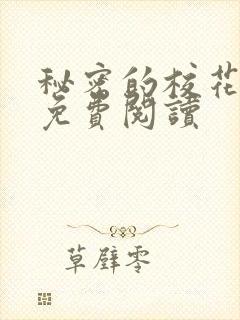 秘密的校花
免費閱讀
草壁零